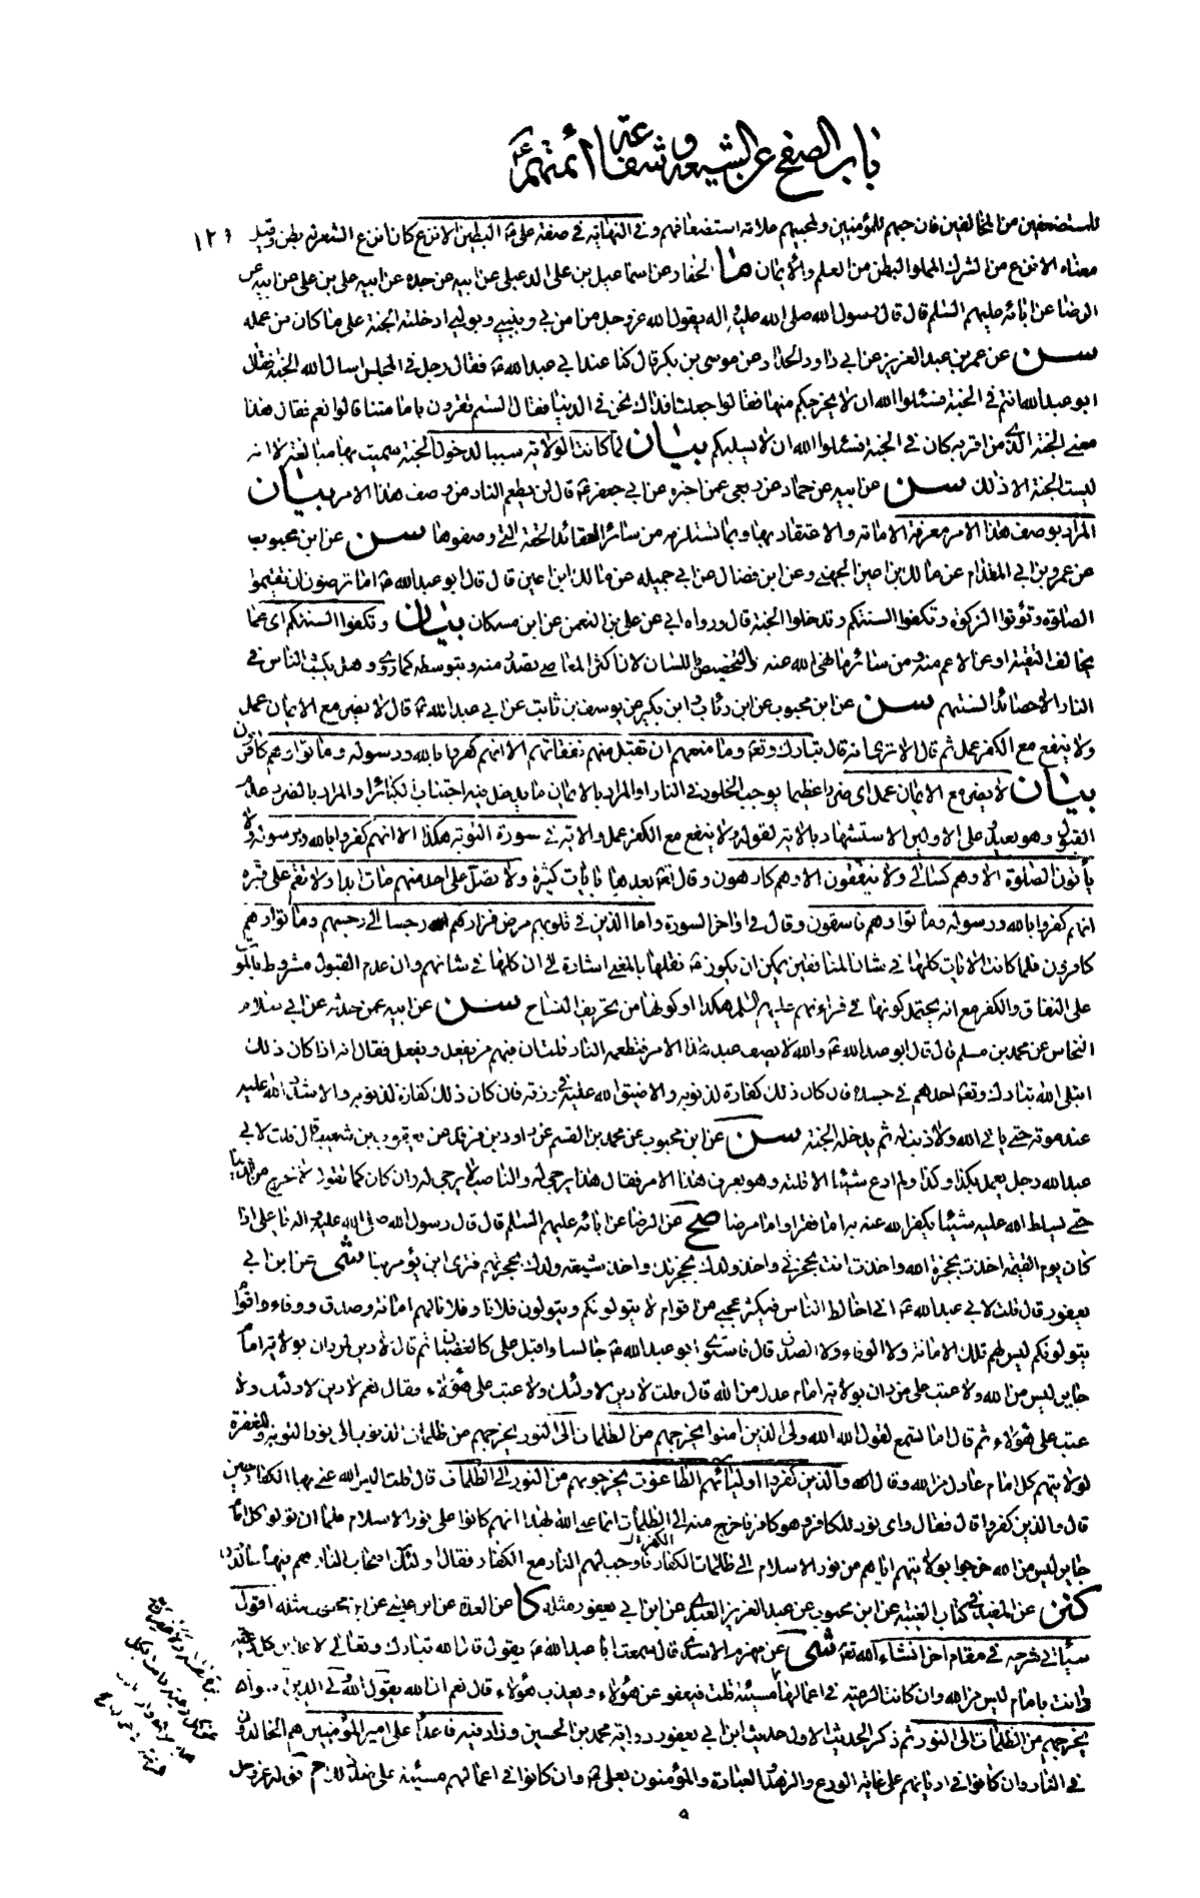 باب الصفح عن الشيعة وشفاعة أئمتهم
١٢٦
للمستضعفين من المخالفين فان حبهم للمؤمنين ومحبيهم علامة استضعافهم وفي النهاية في صفة علي ع البطين الانزع كان انزع الشعر له بطن وقيل
معناه الانزع من الشرك المملو البطن من العلم والايمان ما الحفار عن اسماعيل بن علي الدعبلي عن ابيه عن جده عن ابيه علي بن علي عن ابيه عن
الرضا عن ابائه عليهم السلم قال قال رسول الله صلى الله عليه واله يقول الله عزوجل من امن بي وبنبيي وبوليي ادخلته الجنة على ما كان من عمله
سن عن عمر بن عبد العزيز عن ابي داود الحداد عن موسى بن بكر قال كنا عند ابي عبد الله ع فقال رجل في المجلس اسال الله الجنة فقال
ابو عبد الله انتم في الجنة فسئلوا الله ان لا يخرجكم منها فقالوا جعلنا فداك نحن في الدنيا فقال الستم تقرون بامامتنا قالوا نعم فقال هذا
معنى الجنة الذي من اقر به كان في الجنة فسئلوا الله ان لا يسلبكم بيان لما كانت الولاية سببا لدخول الجنة سميت بها مبالغة لا انه
ليست الجنة الا ذلك سن عن ابيه عن حماد عن ربعي عمن اخبره عن ابي جعفر ع قال لن يطعم النار من وصف هذا الامر بيان
المراد بوصف هذا الامر معرفة الامامة والاعتقاد بها وبما تستلزمه من سائر العقائد الحقة التي وصفوها سن عن ابن محبوب
عن عمرو بن ابي المقدام عن مالك بن اعين الجهني وعن ابن فضال عن ابي جميله عن مالك ابن اعين قال قال ابو عبد الله ع اما ترضون ان تقيموا
الصلوة وتؤتوا الزكوة وتكفوا السنتكم وتدخلوا الجنة قال ورواه ابي عن علي بن النعمن عن ابن مسكان بيان وتكفوا السنتكم اي عما
يخالف التقية او عن الاعم منه ومن سائر ما نهى الله عنه والتخصيص باللسان لان اكثر المعاصي يصدر منه وبتوسطه كما روي وهل يكب الناس في
النار الا حصائد السنتهم سن عن ابن محبوب عن ابن رئاب وابن بكير عن يوسف بن ثابت عن ابي عبد الله ع قال لا يضر مع الايمان عمل
ولا ينفع مع الكفر عمل ثم قال الا ترى انه قال تبارك وتعه وما منعهم ان تقبل منهم نفقاتهم الا انهم كفروا بالله ورسوله وماتوا وهم كافرون
بيان لا يضر مع الايمان عمل اي ضررا عظيما يوجب الخلود في النار او المراد بالايمان ما يدخل فيه اجتناب الكبائر او المراد بالضرر عدم
القبول وهو بعيد على الاولين الاستشهاد بالاية لقوله ولا ينفع مع الكفر عمل والاية في سورة التوبة هكذا الا انهم كفروا بالله وبرسوله ولا
يأتون الصلوة الا وهم كسالى ولا ينفقون الا وهم كارهون وقال تعه بعدها بايات كثيرة ولا تصل على احد منهم مات ابدا ولا تقم على قبره
انهم كفروا بالله ورسوله وماتوا وهم فاسقون وقال في اواخر السورة واما الذين في قلوبهم مرض فزادتهم رجسا الى رجسهم وماتوا وهم
كافرون فلما كانت الايات كلها في شان المنافقين يمكن ان يكون ع نقلها بالمعنى اشارة الى ان كلها في شانهم وان عدم القبول مشروط بالموت
على النفاق والكفر مع انه يحتمل كونها في قراءتهم عليهم السلم هكذا او كونها من تحريف النساخ سن عن ابيه عمن حدثه عن ابي سلام
النخاس عن محمد بن مسلم قال قال ابو عبد الله ع والله لا يصف عبد هذا الامر فتطعمه النار قلت ان فيهم من يفعل ويفعل فقال انه اذا كان ذلك
ابتلى الله تبارك وتعه احدهم في جسده فان كان ذلك كفارة لذنوبه والا ضيق الله عليه في رزقه فان كان ذلك كفارة لذنوبه والا شدد الله عليه
عند موته حتى ياتي الله ولا ذنب له ثم يدخله الجنة سن عن ابن محبوب عن محمد بن القسم عن داود بن فرقد عن يعقوب بن شعيب قال قلت لابي
عبد الله رجل يعمل بكذا وكذا ولم ادع شيئا الا قلته وهو يعرف هذا الامر فقال هذا يرجى له والناصب لا يرجى له وان كان كما تقول لا يخرج من الدنيا
حتى يسلط الله عليه شيئا يكفر الله عنه به اما فقرا واما مرضا صح عن الرضا عن ابائه عليهم السلم قال قال رسول الله صلى الله عليه واله يا علي اذا
كان يوم القيمة اخذت بحجزة الله واخذت انت بحجزتي واخذ ولدك بحجزتك واخذ شيعة ولدك بحجزتهم فترى اين يؤمر بنا شى عن ابن ابي
يعفور قال قلت لابي عبد الله ع اني اخالط الناس فيكثر عجبي من اقوام لا يتولونكم ويتولون فلانا وفلانا لهم امانة وصدق ووفاء واقوام
يتولونكم ليس لهم تلك الامانة ولا الوفاء ولا الصدق قال فاستوى ابو عبد الله ع جالسا واقبل علي كالغضبان ثم قال لا دين لمن دان بولاية امام
جاير ليس من الله ولا عتب على من دان بولاية امام عدل من الله قال قلت لا دين لاولئك ولا عتب على هؤلاء فقال نعم لا دين لاولئك ولا
عتب على هؤلاء ثم قال اما تسمع لقول الله الله ولي الذين امنوا يخرجهم من الظلمات الى النور يخرجهم من ظلمات الذنوب الى نور التوبة والمغفرة
لولايتهم كل امام عادل من الله وقال الله والذين كفروا اولياؤهم الطاغوت يخرجونهم من النور الى الظلمات قال قلت اليس الله عنى بها الكفار حين
قال والذين كفروا قال فقال واي نور للكافر وهو كافر فاخرج منه الى الظلمات انما عنى الله بهذا انهم كانوا على نور الاسلام فلما ان تولوا كل امام
جاير ليس من الله خرجوا بولايتهم اياهم من نور الاسلام الى ظلمات الكفر فاوجب لهم النار مع الكفار فقال اولئك اصحاب النار هم فيها خالدون
كنز عن المفيد في كتاب الغيبة عن ابن محبوب عن عبد العزيز العبدي عن ابن ابي يعفور مثله كا عن العدة عن ابن عيسى عن ابن محبوب مثله اقول
سيأتي شرحه في مقام اخر انشاء الله تعه شى عن مهزم الاسدي قال سمعت ابا عبد الله ع يقول قال الله تبارك وتعالى لاعذبن كل رعية
دانت بامام ليس من الله وان كانت الرعية في اعمالها مسيئة قلت فيعفو عن هؤلاء ويعذب هؤلاء قال نعم ان الله يقول الله ولي الذين امنوا
يخرجهم من الظلمات الى النور ثم ذكر الحديث الاول حديث ابن ابي يعفور رواية محمد بن الحسين وزاد فيه فاعداء علي امير المؤمنين هم الخالدون
في النار وان كانوا في اديانهم على غاية الورع والزهد والعبادة والمؤمنون بعلي ع وان كانوا في اعمالهم مسيئة على ضد ذلك قوله عزوجل